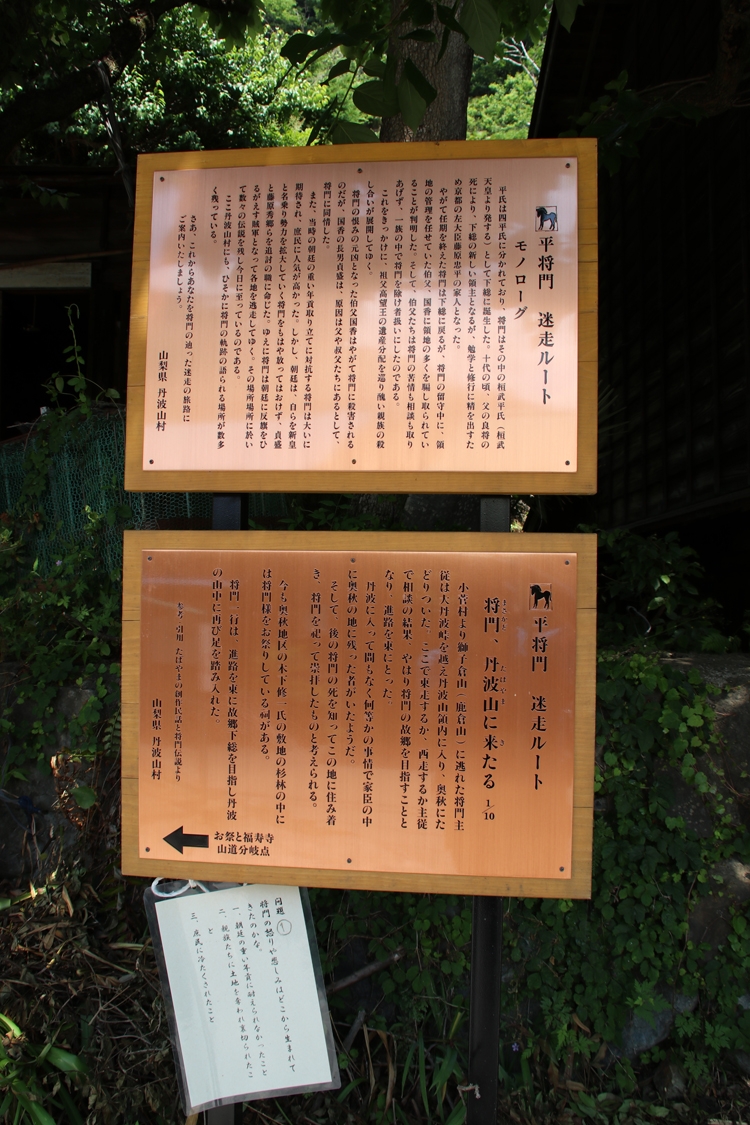 平将門　迷走ルート
モノローグ
平氏は四平氏に分かれており、将門はその中の桓武平氏（桓武
天皇より発する）として下総に誕生した。十代の頃、父の良将の
死により、下総の新しい領主となるが、勉学と修行に精を出すた
め京都の左大臣藤原忠平の家人となった。
やがて任期を終えた将門は下総に戻るが、将門の留守中に、領
地の管理を任せていた伯父、国香に領地の多くを騙し取られてい
ることが判明した。そして、伯父たちは将門の苦情も相談も取り
あげず、一族の中で将門を除け者扱いにしたのである。
これをきっかけに、祖父高望王の遺産分配を巡り醜い親族の殺
し合いが展開してゆく。
将門の恨みの元凶となった伯父国香はやがて将門に殺害される
のだが、国香の長男貞盛は、原因は父や叔父たちにあるとして、
将門に同情した。
また、当時の朝廷の重い年貢取り立てに対抗する将門は大いに
期待され、庶民に人気が高かった。しかし、朝廷は、自らを新皇
と名乗り勢力を拡大していく将門をもはや放ってはおけず、貞盛
と藤原秀郷らを追討の職に命じた。ゆえに将門は朝廷に反旗をひ
るがえす賊軍となって各地を逃走してゆく。その場所場所に於い
て数々の伝説を残し今日に至っているのである。
ここ丹波山村にも、ひそかに将門の軌跡の語られる場所が数多
く残っている。
さあ、これからあなたを将門の辿った迷走の旅路に
ご案内いたしましょう。
山梨県　丹波山村
平将門　迷走ルート
将門、丹波山に来たる　1/10
まさかど　たばやま　き
小菅村より獅子倉山（鹿倉山）に逃れた将門主
従は大丹波峠を越え丹波山領内に入り、奥秋にた
どりついた。ここで東走するか、西走するか主従
で相談の結果、やはり将門の故郷を目指すことと
なり、進路を東にとった。
丹波に入って間もなく何等かの事情で家臣の中
に奥秋の地に残った者がいたようだ。
そして、後の将門の死を知ってこの地に住み着
き、将門を祀って崇拝したものと考えられる。
今も奥秋地区の木下修一氏の敷地の杉林の中に
は将門様をお祭りしている祠がある。
将門一行は、進路を東に故郷下総を目指し丹波
の山中に再び足を踏み入れた。
参考、引用　たばやまの創作民話と将門伝説より
山梨県　丹波山村
お祭と福寿寺
山道分岐点
問題①
将門の怒りや悲しみはどこから生まれて
きたのかな。
一、朝廷の重い年貢に耐えられなかったこと
二、親族たちに土地を奪われ裏切られたこ
と
三、庶民に冷たくされたこと